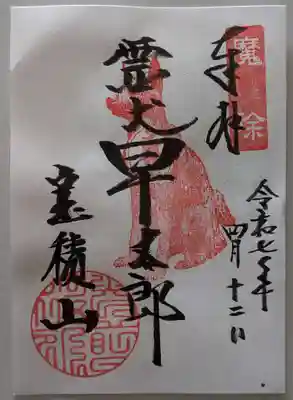 奉拝
魔除
令和七年
四月十二日
霊犬早太郎
宝積山